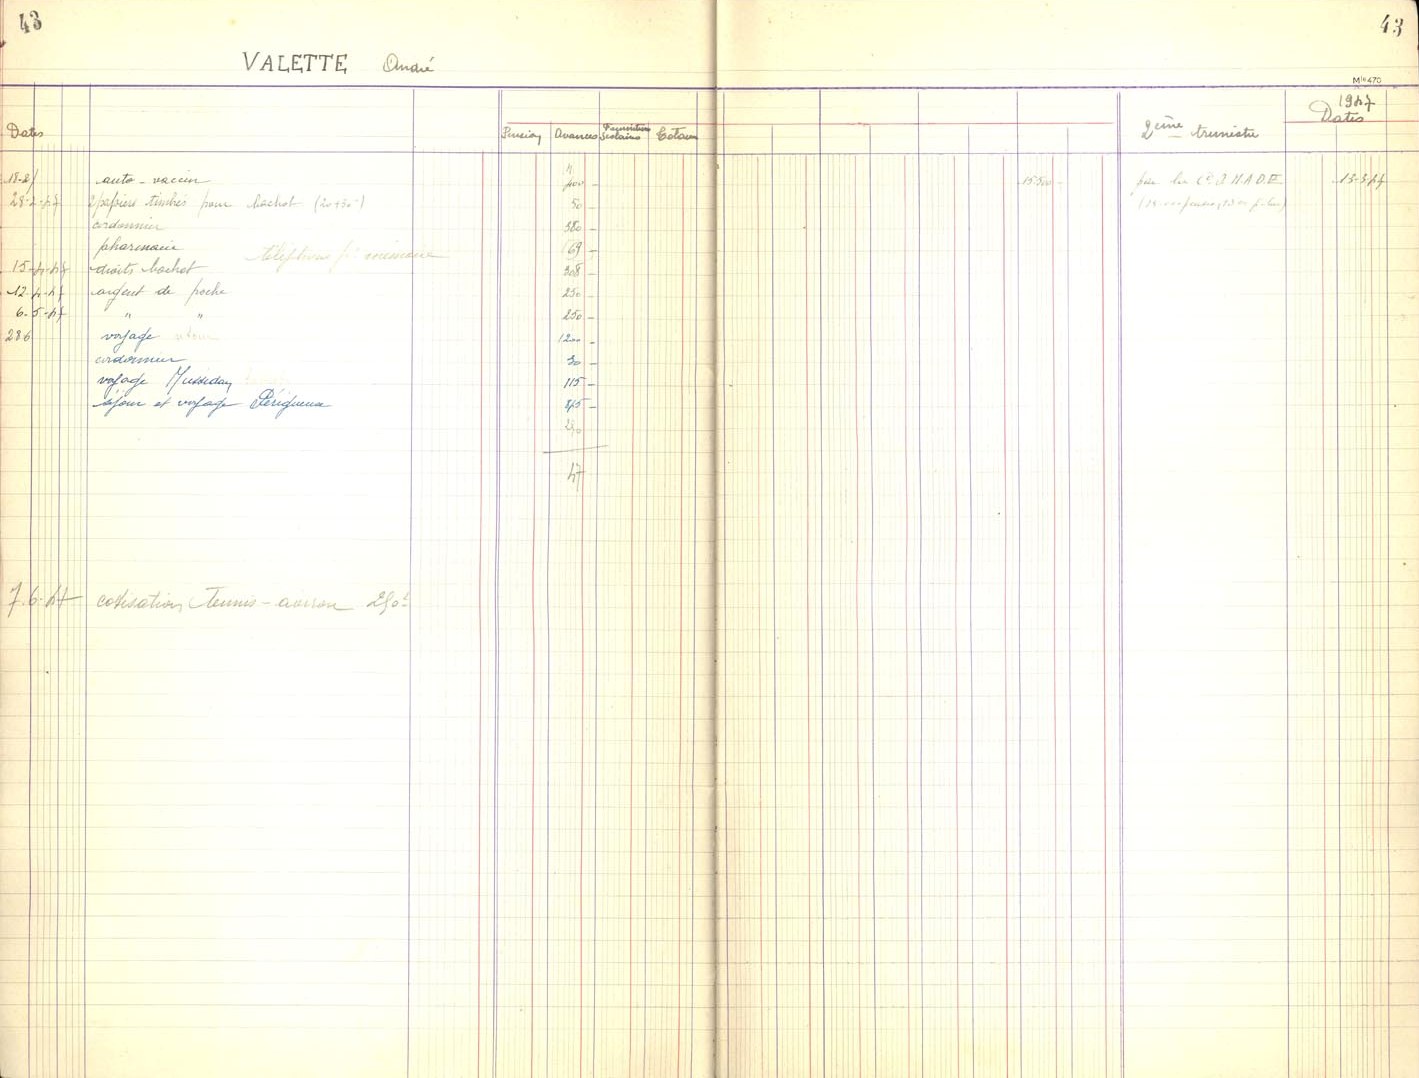 43
43
VALETTE André
Mle 470
Dates
Pension Avances Fournitures Scolaires Totaux
2ème trimestre
1947
Dates
18-2 auto-vaccin 400 -
15500 -
par la Cie 13-3-47
28-2-47 2 papiers timbrés pour bachot (20+30) 50 -
cordonnier 380 -
pharmacie 69 -
téléphone
15-4-47 droits bachot 308 -
12-4-47 argent de poche 250 -
6-5-47 " " 250 -
286 voyage 1200 -
cordonnier 30 -
voyage Mussidan 115 -
séjour et voyage Périgueux 845 -
250
47
7.6.47 cotisation Tennis-aviron 250f